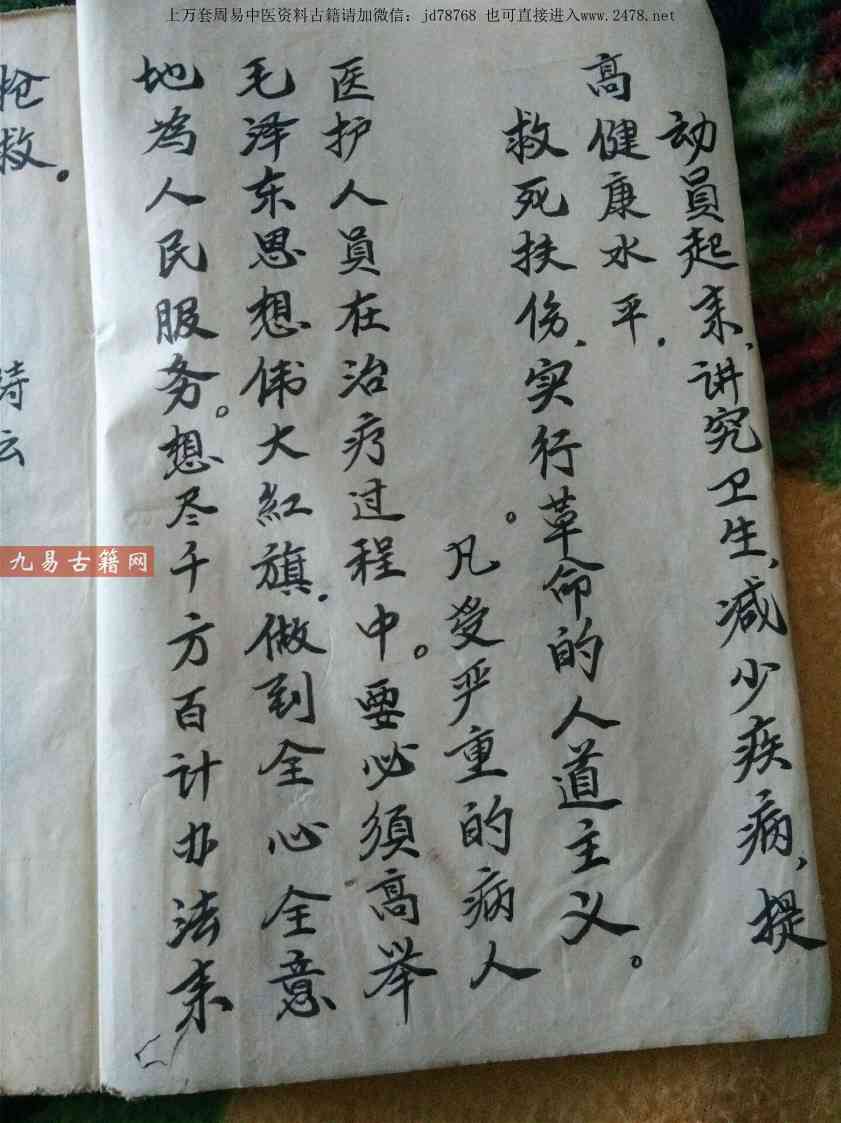 上万套周易中医资料古籍请加微信：jd78768 也可直接进入www.2478.net
动員起来，讲究卫生，减少疾病，提
高健康水平。
救死扶伤，实行革命的人道主义。
。凡受严重的病人
医护人員在治疗过程中。要必須高举
毛泽东思想伟大紅旗，做到全心全意
地為人民服务。想尽千方百计办法来
抢救。
诗云
九易古籍网